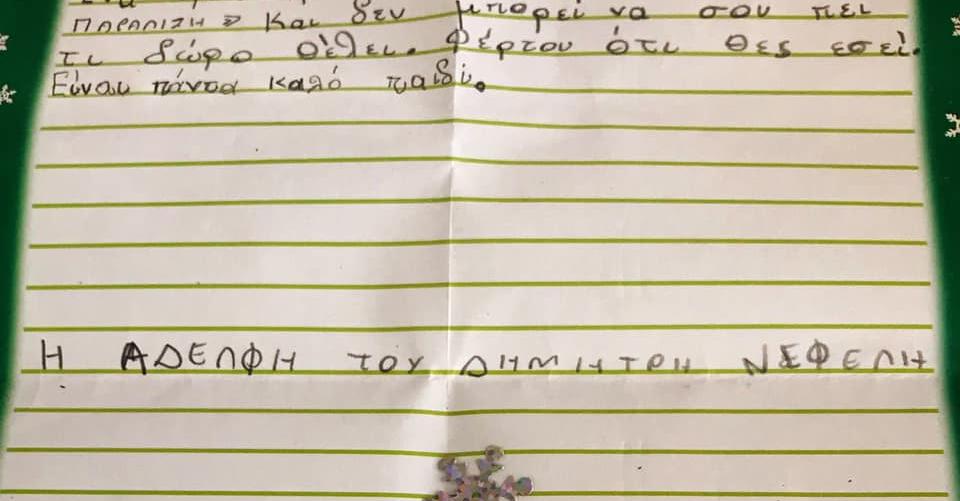 ΠΑΡΑΛΙΣΗ » Και δεν μπορεί να σου πει
τι δώρο θέλει. Φέρτου ότι θες εσεί.
Είναι πάντα καλό παιδί.
Η ΑΔΕΛΦΗ ΤΟΥ ΔΗΜΗΤΡΗ ΝΕΦΕΛΗ